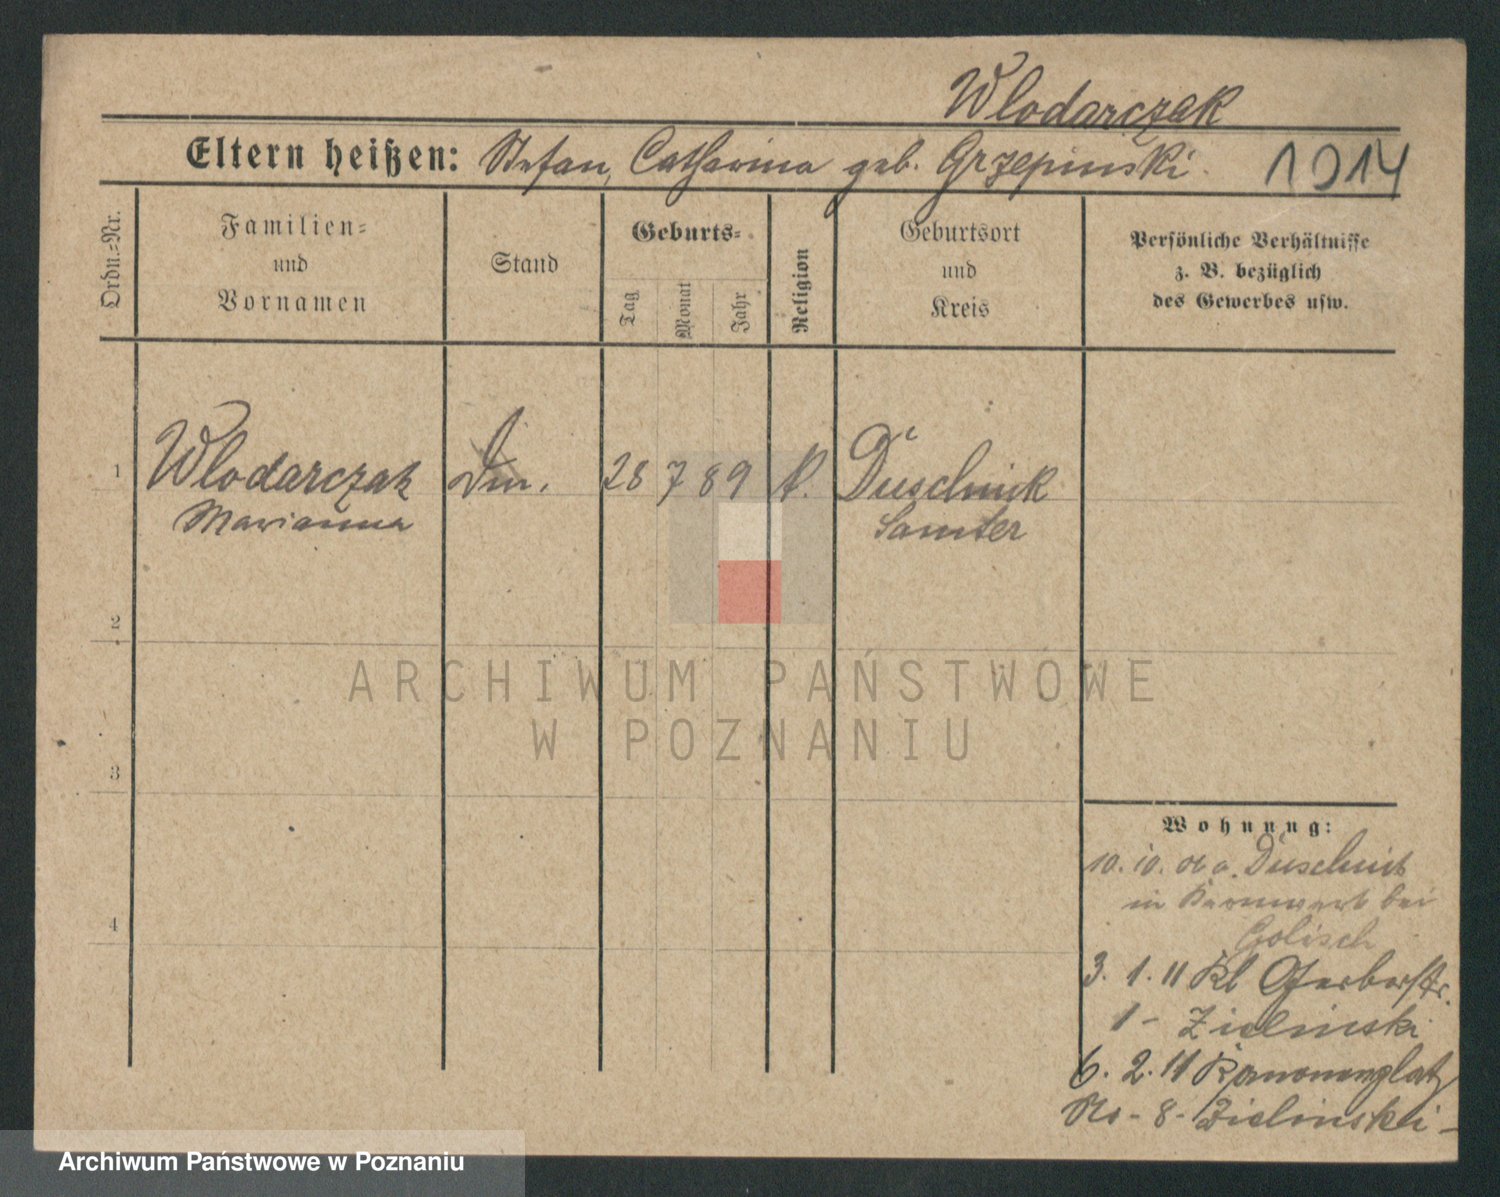 Wlodarczak
Eltern heißen: Stefan, Catharina geb. Grzepinski. 1914
Ordn.=Nr.
Familien=
und
Vornamen
Stand
Geburts=
Tag
Monat
Jahr
Religion
Geburtsort
und
Kreis
Persönliche Verhältnisse
z. B. bezüglich
des Gewerbes usw.
1 Wlodarczak 28 7 89 k. Duschnik
Marianna Samter
2
3
4
Wohnung:
10. 10. a. Duschnik
in bei
Golisch
3. 1. 11 Kl Gerberstr.
1 - Zielinski
6. 2. 11 Kanonenplatz
No - 8 - Zielinski -
ARCHIWUM PAŃSTWOWE
W POZNANIU
Archiwum Państwowe w Poznaniu